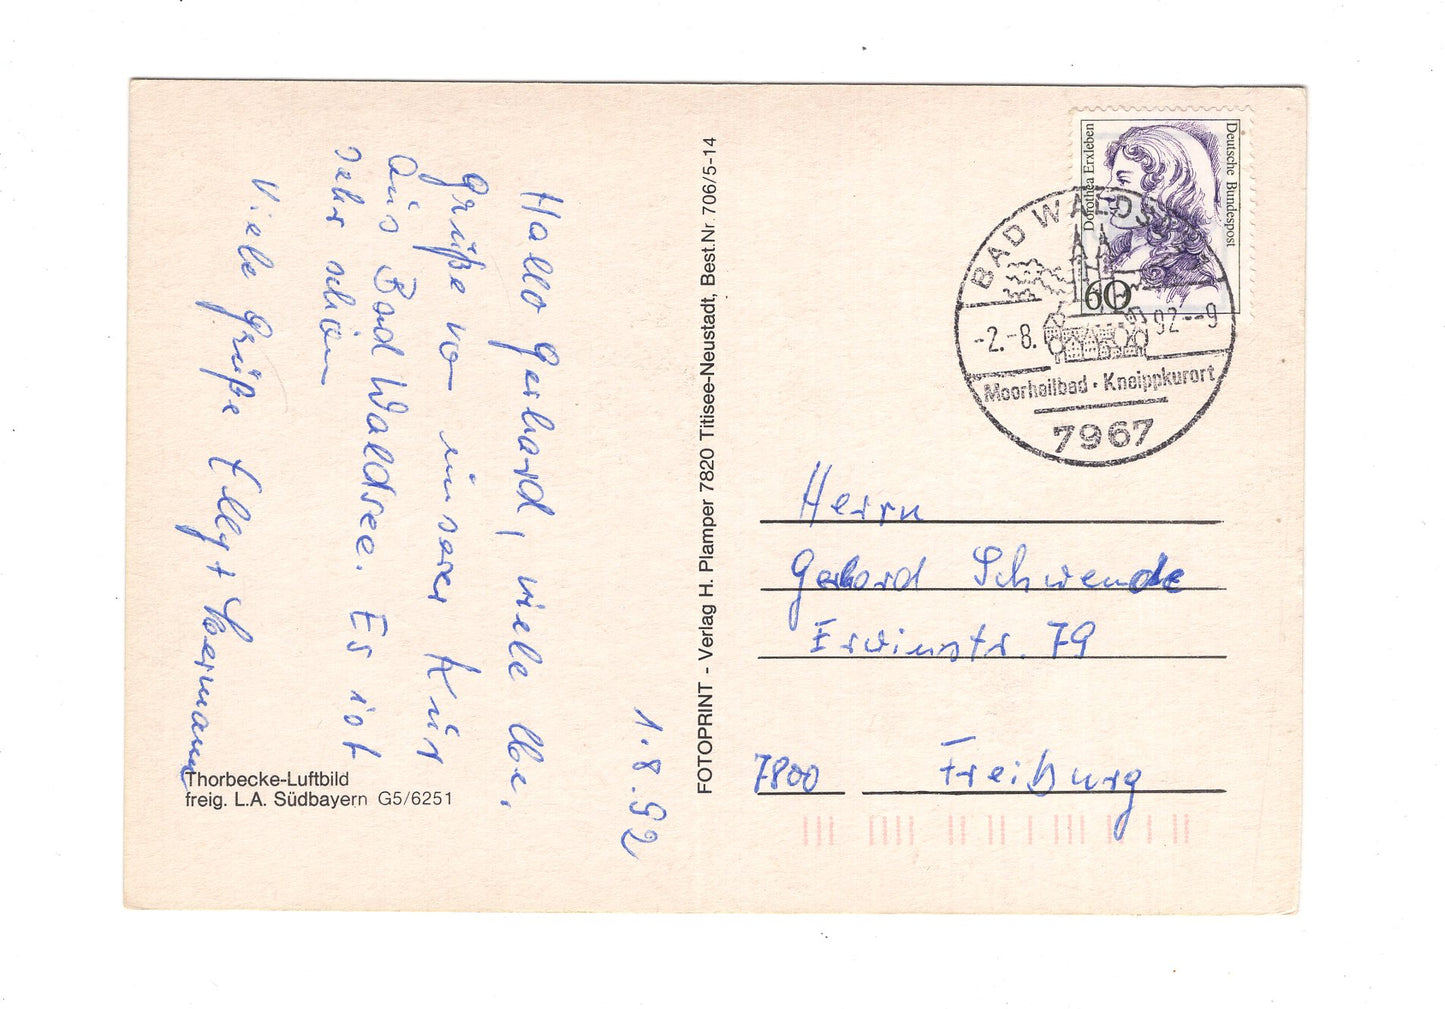 1.8.92
Hallo Gerhard, viele lbe.
Grüße von unserer Kur
aus Bad Waldsee. Es ist
sehr schön
Viele Grüße Elly + Hermann
Thorbecke-Luftbild
freig. L.A. Südbayern G5/6251
FOTOPRINT - Verlag H. Plamper 7820 Titisee-Neustadt, Best.Nr. 706/5-14
Deutsche Bundespost
Dorothea Erxleben
60
BAD WALDS
-2.-8. 92--9
Moorheilbad · Kneippkurort
7967
Herrn
Gerhard Schwende
Erwinstr. 79
7800 Freiburg